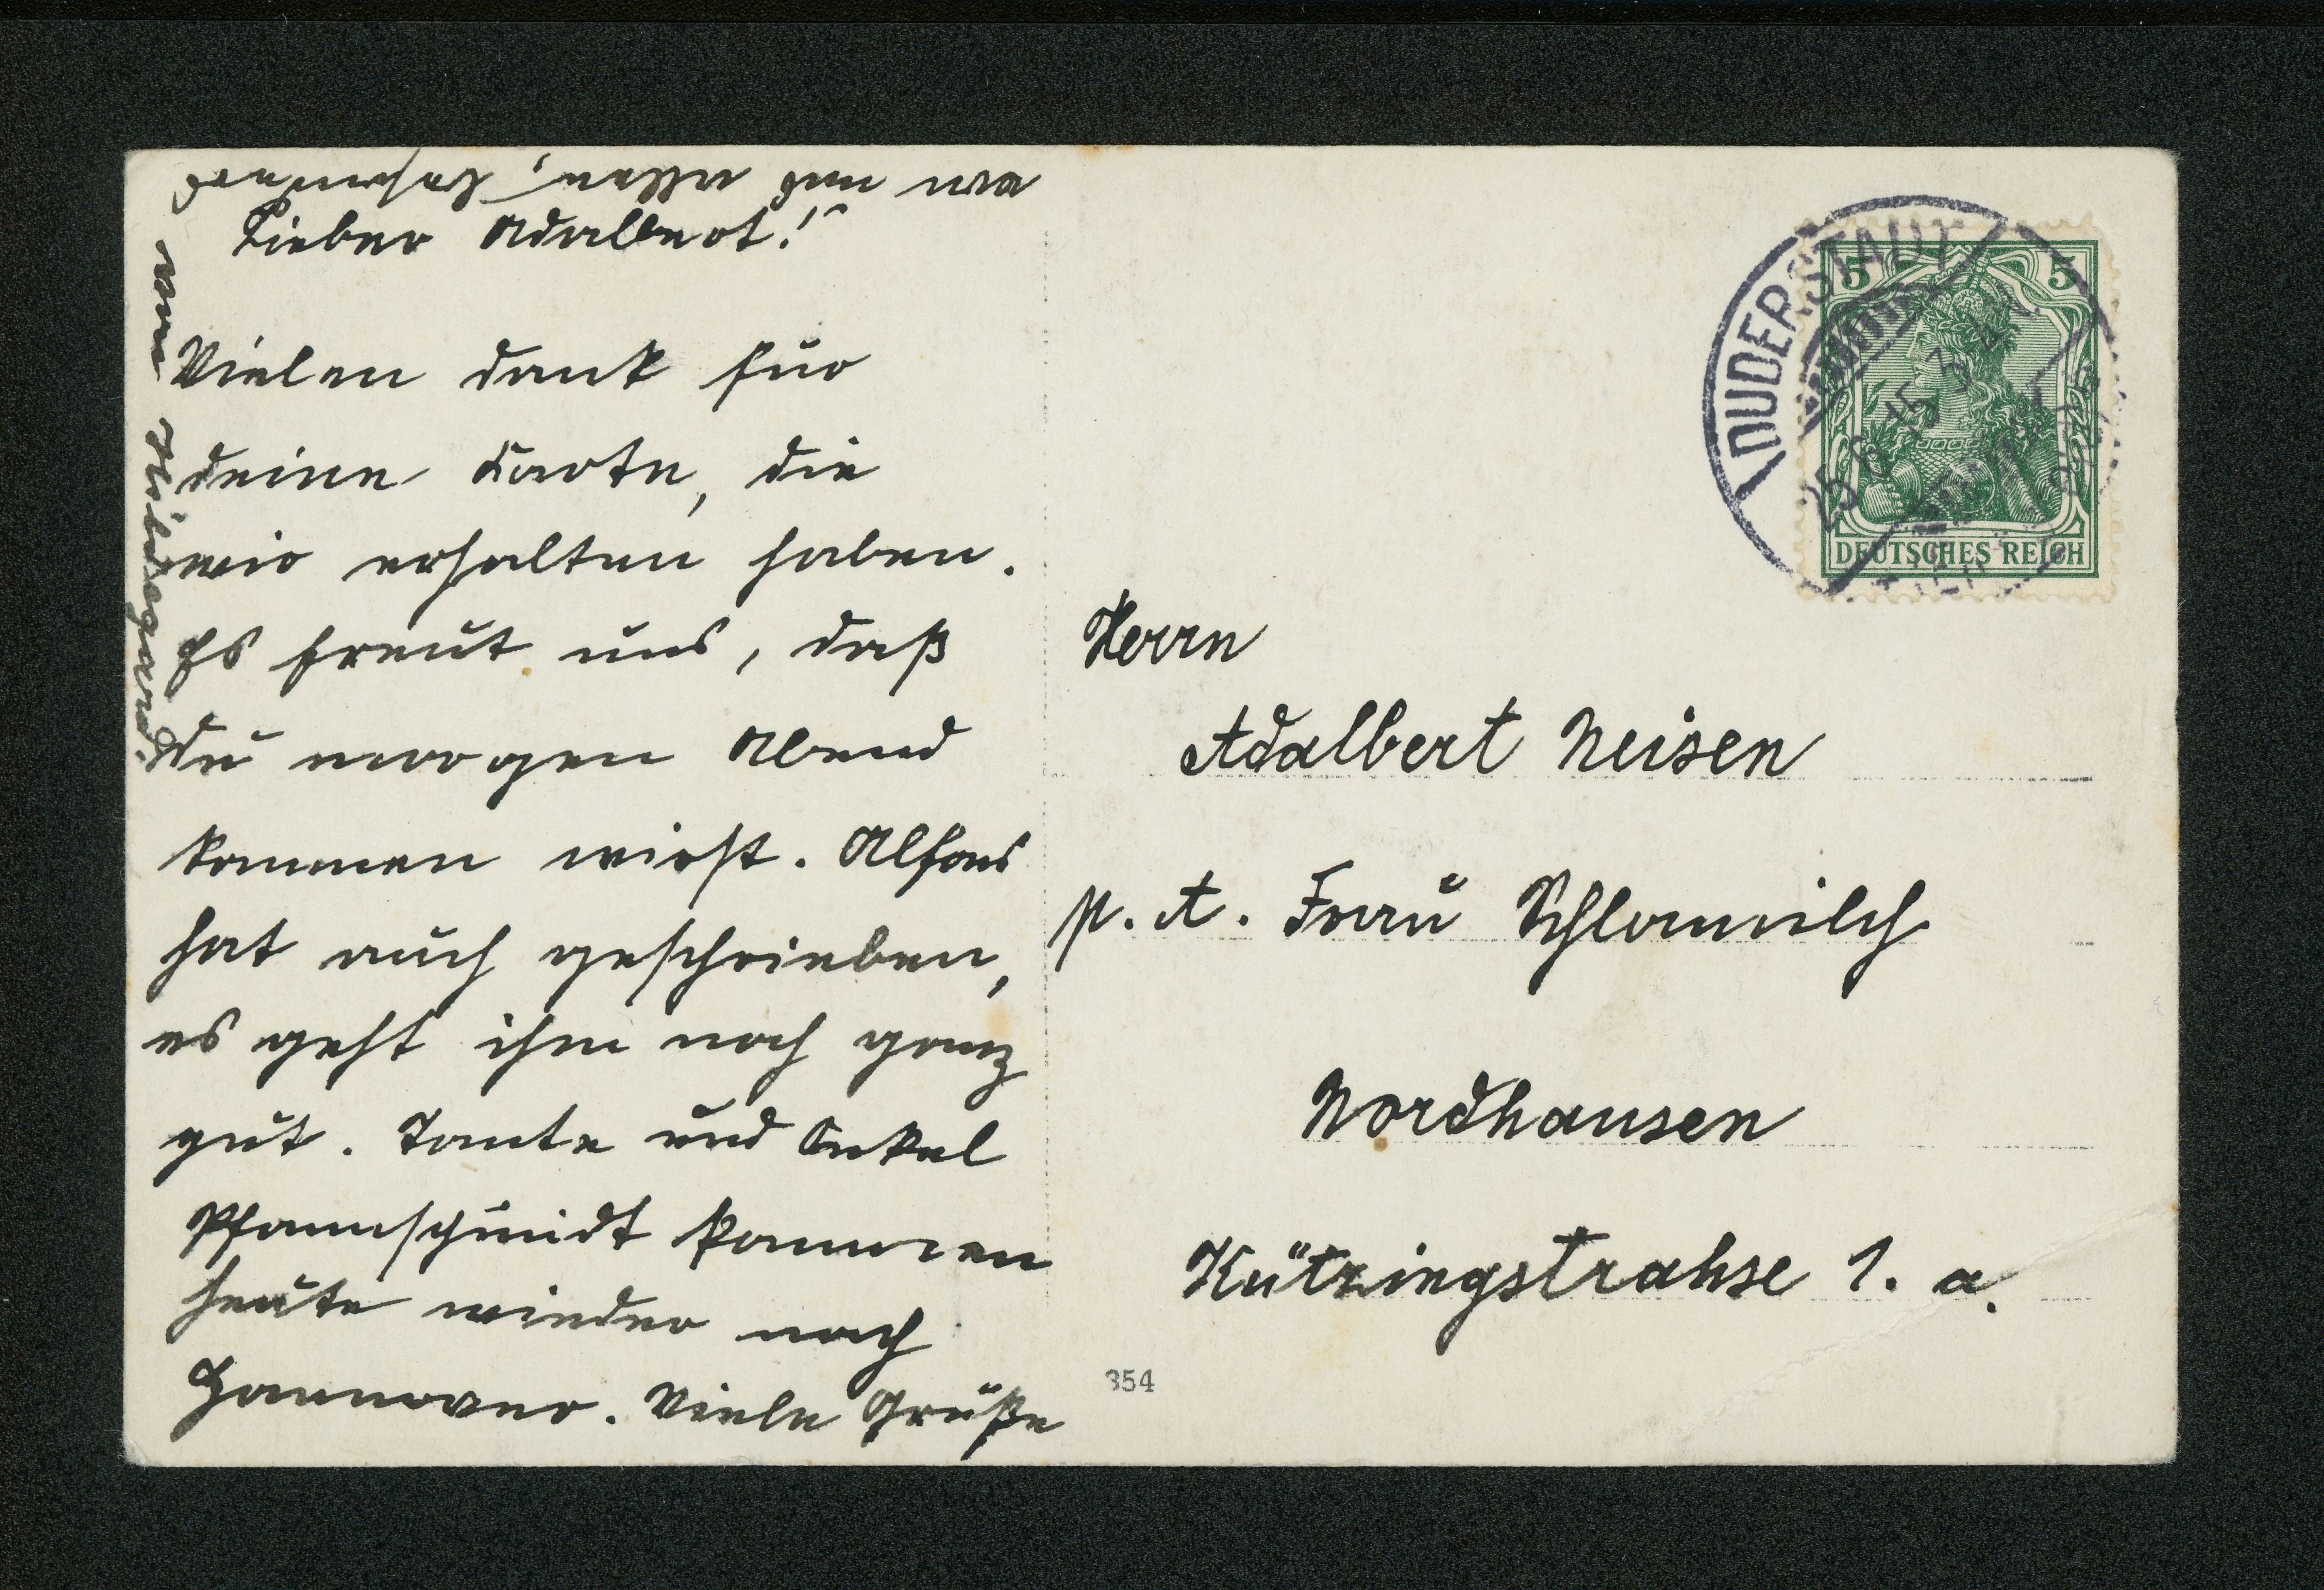 Lieber Adalbert!
Vielen dank für
deine Karte, die
wir erhalten haben.
Es freut uns, daß
Du morgen Abend
kommen wirst. Alfons
hat auch geschrieben,
es geht ihm noch ganz
gut. Tante und Onkel
Pfannschmidt kommen
heute wieder nach
Hannover. Viele Grüße
von uns allen, besonders
von Hildegard.
DUDERSTADT
25 6 15 3-4
5 5
DEUTSCHES REICH
Herrn
Adalbert Neisen
p. A. Frau Schlomilch
Nordhausen
Kützingstrahse 1. a.
354